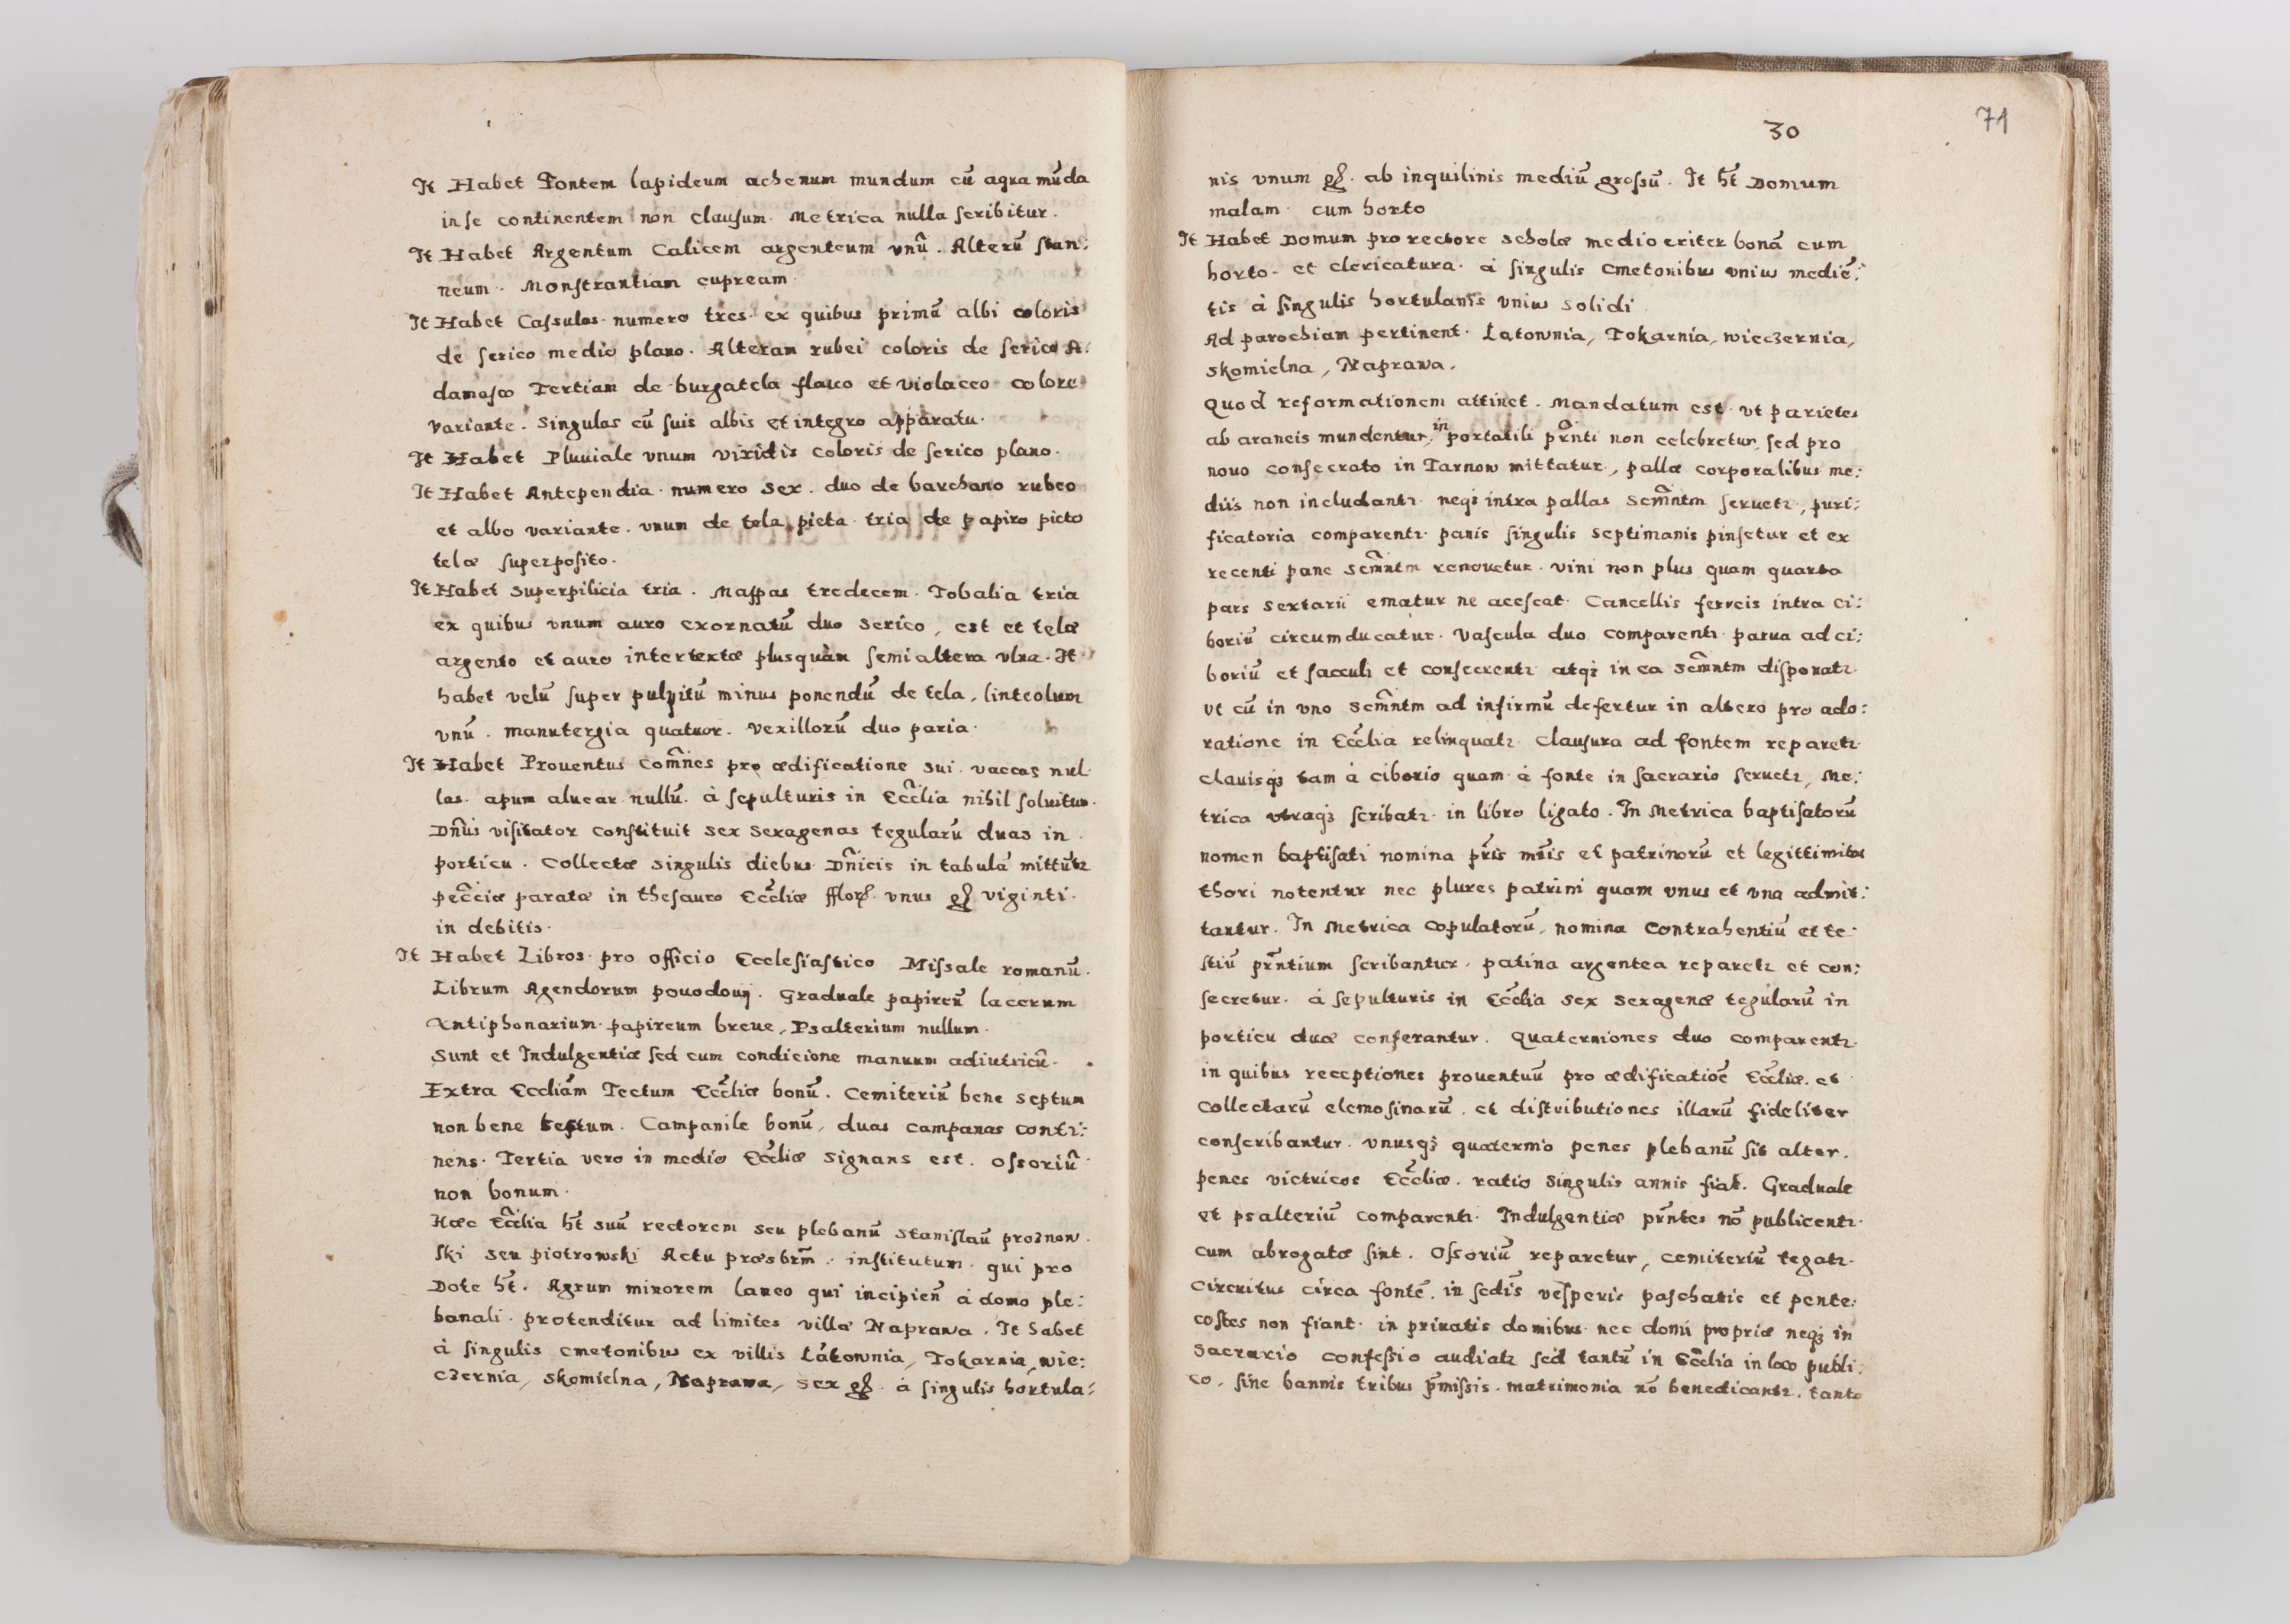 It Habet Fontem lapideum achenum mundum cū aqua mūda
in se continentem non clausum. Metrica nulla scribitur.
It Habet Argentum Calicem argenteum vnū. Alterū stan:
neum. Monstrantiam cupream.
It Habet Cassulas numero tres ex quibus primā albi coloris
de serico medio plano. Alteram rubei coloris de serico A:
damasco Tertiam de burgatela flauo et violaceo colore
variante. Singulas cū suis albis et integro apparatu.
It Habet Pluuiale vnum viridis coloris de serico plano.
It Habet Antependia numero sex. duo de barchano rubeo
et albo variante. vnum de tela picta tria de papiro picto
telæ superposito.
It Habet superpilicia tria. Mappas tredecem. Tobalia tria
ex quibus vnum auro exornatū duo serico, est et telæ
argento et auro intertextæ plusquàm semialtera vlna. It
habet velū super pulpitū minus ponendū de tela, linteolum
vnū. manutergia quatuor. vexillorū duo paria.
It Habet Prouentus com̃nes pro ædificatione sui. vaccas nul
las. apum aluear nullū. à sepulturis in Eccl̃ia nihil soluitur.
Dñus visitator constituit sex sexagenas tegularū duas in
porticu. Collectæ singulis diebus Dñicis in tabula mittūtz
pecc̃iæ paratæ in thesauro Eccl̃iæ fflor̃. vnus gł viginti.
in debitis.
It Habet Libros pro officio Ecclesiastico Missale romanū.
Librum Agendorum pouodouÿ. Graduale papireū lacerum
Antiphonarium papireum breue, Psalterium nullum.
Sunt et Indulgentiæ sed cum condicione manuum adiutricū.
Extra Eccliãm Tectum Eccl̃iæ bonū. Cemiteriū bene septum
non bene tectum. Campanile bonū, duas campanas conti:
nens. Tertia vero in medio Eccl̃iæ signans est. Ossoriū
non bonum.
Hæc Eccl̃ia ht̃ suū rectorem seu plebanū Stanislaū proznow
ski seu piotrowski Actu præsbrm̃. institutum qui pro
Dote ht̃. Agrum minorem laneo qui incipień à domo ple:
banali. protenditur ad limites villæ Naprawa. It habet
à singulis cmetonibus ex villis Łátownia, Tokarnia, wie:
czernia, Skomielna, Naprawa, sex gł. à singulis hortula:
30
71
nis vnum gł. ab inquilinis mediū grossū. It ht̃ Domum
malam. cum horto
It Habet Domum pro rectore scholæ mediocriter bonā cum
horto. et clericatura. à singulis cmetonibus vnius mediē:
tis à singulis hortulanis vnius solidi
Ad parochiam pertinent. Łatownia, Tokarnia, wieczernia,
Skomielna, Naprawa.
Quod reformationem attinet. Mandatum est. vt parietes
ab araneis mundentur, in portatili pñnti non celebretur, sed pro
nouo consecrato in Tarnow mittatur, pallæ corporalibus me:
diis non includantz. neqz intra pallas Scm̃ntm seruetz, puri:
ficatoria comparentz. panis singulis septimanis pinsetur et ex
recenti pane Scm̃ntm renouetur. vini non plus quam quarta
pars sextarii ematur ne acescat. Cancellis ferreis intra ci:
boriū circumducatur. Vascula duo comparentz. parua ad ci:
boriū et sacculi et consecrentz atqz in ea Scm̃ntm disponatz.
vt cū in vno Scm̃ntm ad infirmū defertur in altero pro ado:
ratione in Eccl̃ia relinquatz. Clausura ad fontem reparetz
clauisqz tam à ciborio quam à fonte in sacrario seruetz, Me:
trica vtraqz scribatz. in libro ligato. In Metrica baptisatorū
nomen baptisati nomina pr̃is mr̃is et patrinorū et legittimitas
thori notentur nec plures patrini quam vnus et vna admit:
tantur. In Metrica copulatorū, nomina contrahentiū et te:
stiū pr̃ntium scribantur, patina argentea reparetz et con:
secretur. à sepulturis in Eccl̃ia sex sexagenæ tegularū in
porticu duæ conferantur. Quaterniones duo comparentz.
in quibus receptiones prouentuū pro ædificatiõe Eccl̃iæ. et
collectarū elemosinarū. et distributiones illarū fideliter
conscribantur. vnusqz quaternio penes plebanū sit alter.
penes victricos Eccl̃iæ. ratio singulis annis fiat. Graduale
et psalteriū comparentz. Indulgentiæ pr̃ntes nō publicentz.
cum abrogatæ sint. Ossoriū reparetur, cemiteriū tegatz.
Circuitus circa fontē. in sedis vesperis paschatis et pente:
costes non fiant. in priuatis domibus nec domi propriæ neqz in
Sacrario confessio audiatz sed tantū in Eccl̃ia in loco publi:
co. sine bannis tribus p̃missis. matrimonia nō benedicantz. tanto